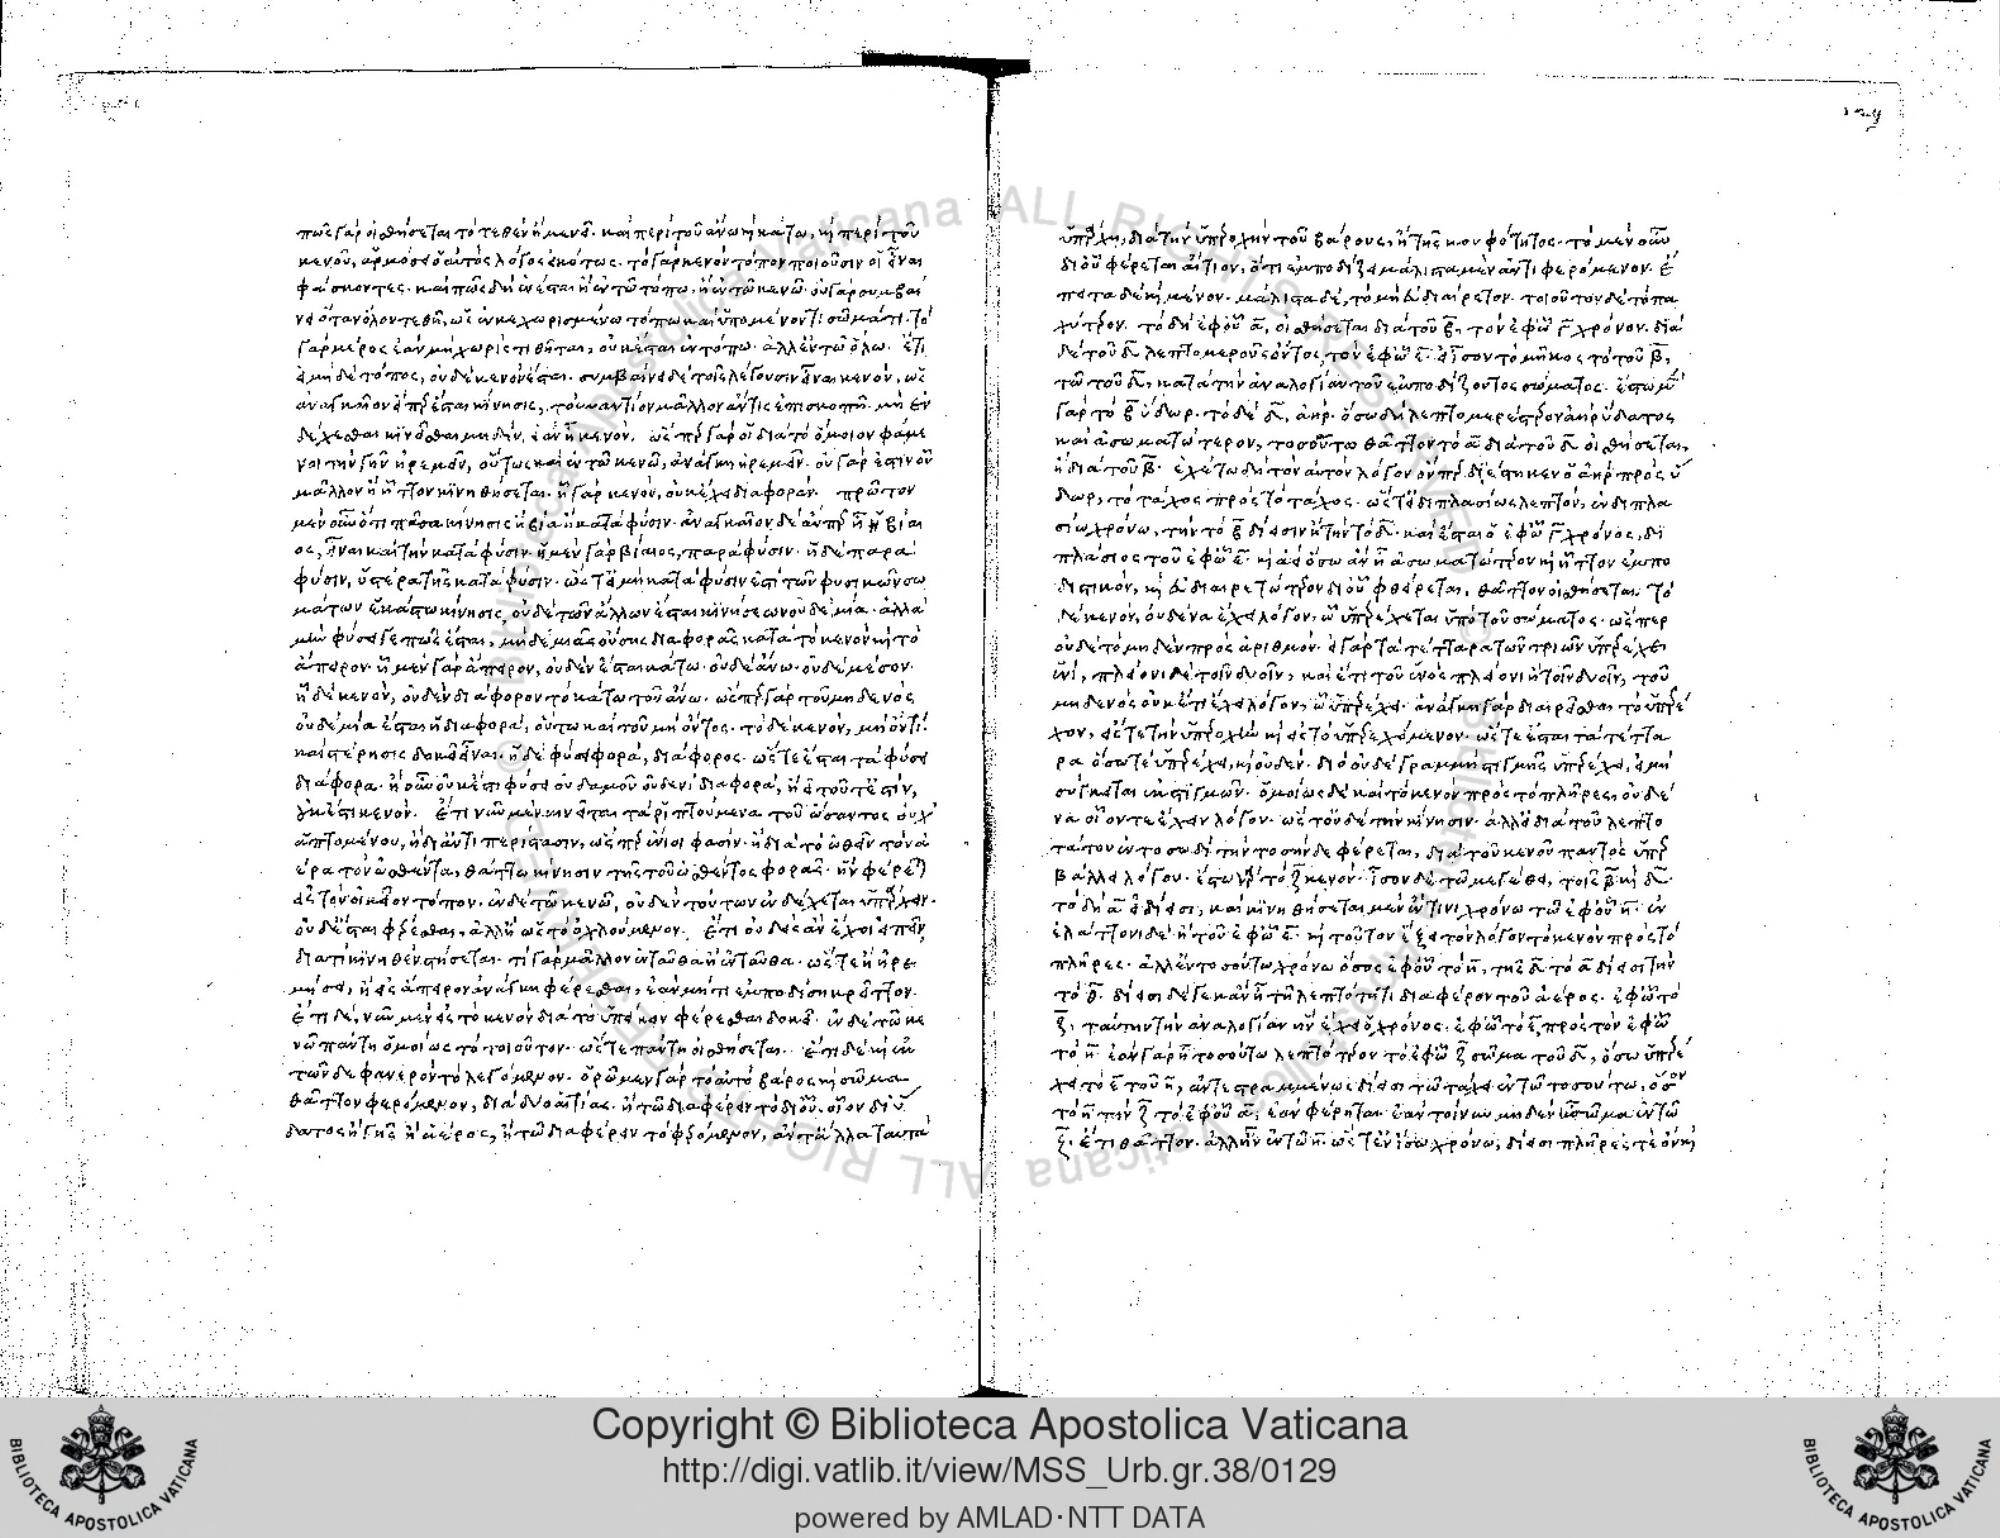 πῶς γὰρ οἰσθήσεται τὸ τεθὲν ἢ μενεῖ. καὶ περὶ τοῦ ἄνω ἢ κάτω, καὶ περὶ τοῦ
κενοῦ, ἁρμόσει ὁ αὐτὸς λόγος εἰκότως. τὸ γὰρ κενὸν τόπον ποιοῦσιν οἱ εἶναι
φάσκοντες. καὶ πῶς δὴ ἐνέσται ἢ ἐν τῶ τόπω, ἢ ἐν τῶ κενῶ. οὐ γὰρ συμβαί
νει ὅταν ὅλον τεθῆ, ὡς ἐν κεχωρισμένω τόπω καὶ ὑπομένοντι σῶμά τι. τὸ
γὰρ μέρος ἐὰν μὴ χωρὶς τιθῆται, οὐκ ἔσται ἐν τόπω. ἀλλ' ἐν τῶ ὅλω. ἔτι
εἰ μηδὲ τόπος, οὐδὲ κενὸν ἔσται. συμβαίνει δὲ τοῖς λέγουσιν εἶναι κενὸν, ὡς
ἀναγκαῖον εἴπερ ἔσται κίνησις, τοὐναντίον μᾶλλον ἄν τις ἐπισκοπῆ. μὴ ἐν
δέχεσθαι κινεῖσθαι μηδὲν, ἐὰν ἦ κενὸν. ὥσπερ γὰρ οἱ διὰ τὸ ὅμοιον φάμε
νοι τὴν γῆν ἠρεμεῖν, οὕτως καὶ ἐν τῶ κενῶ, ἀνάγκη ἠρεμεῖν. οὐ γὰρ ἔστιν οὗ
μᾶλλον ἢ ἧττον κινηθήσεται. ἧ γὰρ κενὸν, οὐκ ἔχει διαφορὰν. πρῶτον
μὲν οὖν ὅτι πᾶσα κίνησις ἢ βία ἢ κατὰ φύσιν. ἀναγκαῖον δὲ ἄνπερ ἦ ἡ βίαι
ος, εἶναι καὶ τὴν κατὰ φύσιν. ἡ μὲν γὰρ βίαιος, παρὰ φύσιν. ἡ δὲ παρὰ
φύσιν, ὑστέρα τῆς κατὰ φύσιν. ὥστ' εἰ μὴ κατὰ φύσιν ἐστὶ τῶν φυσικῶν σω
μάτων ἑκάστω κίνησις, οὐδὲ τῶν ἄλλων ἔσται κινήσεων οὐδεμία. ἀλλὰ
μὴν φύσει γε πῶς ἔσται, μηδεμιᾶς οὔσης διαφορᾶς κατὰ τὸ κενὸν καὶ τὸ
ἄπειρον. ἧ μὲν γὰρ ἄπειρον, οὐδὲν ἔσται κάτω. οὐδὲ ἄνω. οὐδὲ μέσον.
ἧ δὲ κενὸν, οὐδὲν διάφορον τὸ κάτω τοῦ ἄνω. ὥσπερ γὰρ τοῦ μηδενὸς
οὐδεμία ἔσται ἡ διαφορὰ, οὕτω καὶ τοῦ μὴ ὄντος. τὸ δὲ κενὸν, μὴ ὄν τι
καὶ στέρησις δοκεῖ εἶναι. ἡ δὲ φύσει φορὰ, διάφορος. ὥστε ἔσται τὰ φύσει
διάφορα. ἢ οὖν οὐκ ἔστι φύσει οὐδαμοῦ οὐδενὶ διαφορὰ, ἢ εἰ τοῦτ' ἔστιν,
οὐκ ἔστι κενὸν. ἔτι νῦν μὲν κινεῖται τὰ ῥιπτούμενα τοῦ ὤσαντος οὐχ
ἁπτομένου, ἢ δι' ἀντιπερίστασιν, ὥσπερ ἔνιοί φασιν. ἢ διὰ τὸ ὠθεῖν τὸν ἀ
έρα τὸν ὠσθέντα, θάττω κίνησιν τῆς τοῦ ὠσθέντος φορᾶς. ἣν φέρεται
εἰς τὸν οἰκεῖον τόπον. ἐν δὲ τῶ κενῶ, οὐδὲν τούτων ἐνδέχεται ὑπάρχειν.
οὐδ' ἔσται φέρεσθαι, ἀλλ' ἢ ὡς τὸ ὀχλούμενον. ἔτι οὐδεὶς ἂν ἔχοι εἰπεῖν,
διατί κινηθέν στήσεται. τί γὰρ μᾶλλον ἐνταῦθα ἢ ἐνταῦθα. ὥστε ἢ ἠρε
μήσει, ἢ εἰς ἄπειρον ἀνάγκη φέρεσθαι, ἐὰν μή τι ἐμποδίση κρεῖττον.
ἔτι δὲ, νῦν μὲν εἰς τὸ κενὸν διὰ τὸ ὑπείκειν φέρεσθαι δοκεῖ. ἐν δὲ τῶ κε
νῶ πάντη ὁμοίως τὸ τοιοῦτον. ὥστε πάντη οἰσθήσεται. ἔτι δὲ καὶ ἐκ
τῶνδε φανερὸν τὸ λεγόμενον. ὁρῶμεν γὰρ τὸ αὐτὸ βάρος καὶ σῶμα
θᾶττον φερόμενον, διὰ δύο αἰτίας. ἢ τῶ διαφέρειν τὸ δι' οὗ. οἷον δι' ὕ
δατος ἢ γῆς ἢ ἀέρος, ἢ τῶ διαφέρειν τὸ φερόμενον, ἂν τἆλλα ταυτὰ
ὑπάρχη, διὰ τὴν ὑπεροχὴν τοῦ βάρους, ἢ τῆς κουφότητος. τὸ μὲν οὖν
δι' οὗ φέρεται αἴτιον, ὅτι ἐμποδίζει μάλιστα μὲν ἀντιφερόμενον. ἔ
πειτα δὲ καὶ μένον. μάλιστα δὲ, τὸ μὴ εὐδιαίρετον. τοιοῦτον δὲ τὸ πα
χύτερον. τὸ δὴ ἐφ' οὗ α, οἰσθήσεται διὰ τοῦ β, τὸν ἐφ' ὧ γ χρόνον. διὰ
δὲ τοῦ δ λεπτομεροῦς ὄντος, τὸν ἐφ' ὧ ε. εἰ ἴσον τὸ μῆκος τὸ τοῦ β,
τῶ τοῦ δ, κατὰ τὴν ἀναλογίαν τοῦ ἐμποδίζοντος σώματος. ἔστω μὲν
γὰρ τὸ β ὕδωρ. τὸ δὲ δ, ἀήρ. ὅσω δὴ λεπτομερέστερον ἀὴρ ὕδατος
καὶ ἀσωματώτερον, τοσούτω θᾶττον τὸ α διὰ τοῦ δ οἰσθήσεται,
ἢ διὰ τοῦ β. ἐχέτω δὴ τὸν αὐτὸν λόγον ὅνπερ διέστηκεν ὁ ἀὴρ πρὸς ὕ
δωρ, τὸ τάχος πρὸς τὸ τάχος. ὥστ' εἰ διπλασίως λεπτὸν, ἐν διπλα
σίω χρόνω, τὴν τὸ β δίεισιν ἢ τὴν τὸ δ. καὶ ἔσται ὁ ἐφ' ὧ γ χρόνος, δι
πλάσιος τοῦ ἐφ' ὧ ε. καὶ ἀεὶ ὅσω ἂν ἦ ἀσωματώτερον καὶ ἧττον ἐμπο
διστικὸν, καὶ εὐδιαιρετώτερον δι' οὗ φέρεται, θᾶττον οἰσθήσεται. τὸ
δὲ κενὸν, οὐδένα ἔχει λόγον, ὧ ὑπερέχεται ὑπὸ τοῦ σώματος. ὥσπερ
οὐδὲ τὸ μηδὲν πρὸς ἀριθμὸν. εἰ γὰρ τὰ τέτταρα τῶν τριῶν ὑπερέχει
ἑνὶ, πλείονι δὲ τοῖν δυοῖν, καὶ ἔτι τοῦ ἑνὸς πλείονι ἢ τοῖν δυοῖν, τοῦ
μηδενὸς οὐκέτι ἔχει λόγον, ὧ ὑπερέχει. ἀνάγκη γὰρ διαιρεῖσθαι τὸ ὑπερέ
χον, εἴς τε τὴν ὑπεροχὴν καὶ εἰς τὸ ὑπερεχόμενον. ὥστε ἔσται τὰ τέττα
ρα ὅσω τε ὑπερέχει, καὶ οὐδέν. διὸ οὐδὲ γραμμὴ στιγμῆς ὑπερέχει, εἰ μὴ
σύγκειται ἐκ στιγμῶν. ὁμοίως δὲ καὶ τὸ κενὸν πρὸς τὸ πλῆρες, οὐδέ
να οἷόν τε ἔχειν λόγον. ὥστ' οὐδὲ τὴν κίνησιν. ἀλλ' εἰ διὰ τοῦ λεπτο
τάτου ἐν τοσωδὶ τὴν τοσήνδε φέρεται, διὰ τοῦ κενοῦ παντὸς ὑπερ
βάλλει λόγον. ἔστω γὰρ τὸ ζ κενὸν. ἴσον δὲ τῶ μεγέθει, τοῖς β καὶ δ.
τὸ δὴ α εἰ δίεισι, καὶ κινηθήσεται μὲν ἔν τινι χρόνω τῶ ἐφ' οὗ η. ἐν
ἐλάττονι δὲ ἢ τοῦ ἐφ' ὧ ε. καὶ τοῦτον ἕξει τὸν λόγον τὸ κενὸν πρὸς τὸ
πλῆρες. ἀλλ' ἐν τοσούτω χρόνω ὅσος ἐφ' οὗ τὸ η, τῆς δ τὸ α δίεισι τὴν
τὸ θ. δίεισι δέ γε κἂν ἦ τῆ λεπτότητι διαφέρον τοῦ ἀέρος. ἐφ' ὧ τὸ
ζ, ταύτην τὴν ἀναλογίαν ἣν ἔχει ὁ χρόνος. ἐφ' ὧ τὸ ε, πρὸς τὸν ἐφ' ὧ
τὸ η. ἐὰν γὰρ ἦ τοσούτω λεπτότερον τὸ ἐφ' ὧ ζ σῶμα τοῦ δ, ὅσω ὑπερέ
χει τὸ ε τοῦ η, ἀντεστραμμένως δίεισι τῶ τάχει ἐν τῶ τοσούτω, ὅσον
τὸ η τὴν ζ τὸ ἐφ' οὗ α, ἐὰν φέρηται. ἐὰν τοίνυν μηδὲν ἦ σῶμα ἐν τῶ
ζ. ἔτι θᾶττον. ἀλλ' ἦν ἐν τῶ η. ὥστ' ἐν ἴσω χρόνω, δίεισι πλῆρές τε ὂν καὶ
Copyright © Biblioteca Apostolica Vaticana
http://digi.vatlib.it/view/MSS_Urb.gr.38/0129
powered by AMLAD·NTT DATA